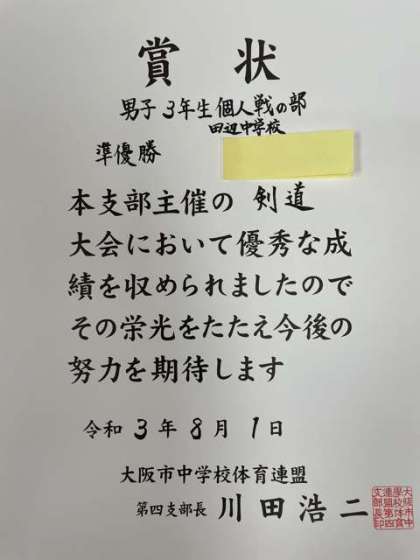 賞状
男子3年生個人戦の部
田辺中学校
準優勝
本支部主催の 剣道
大会において優秀な成
績を収められましたので
その栄光をたたえ今後の
努力を期待します
令和3年8月1日
大阪市中学校体育連盟
第四支部長 川田浩二